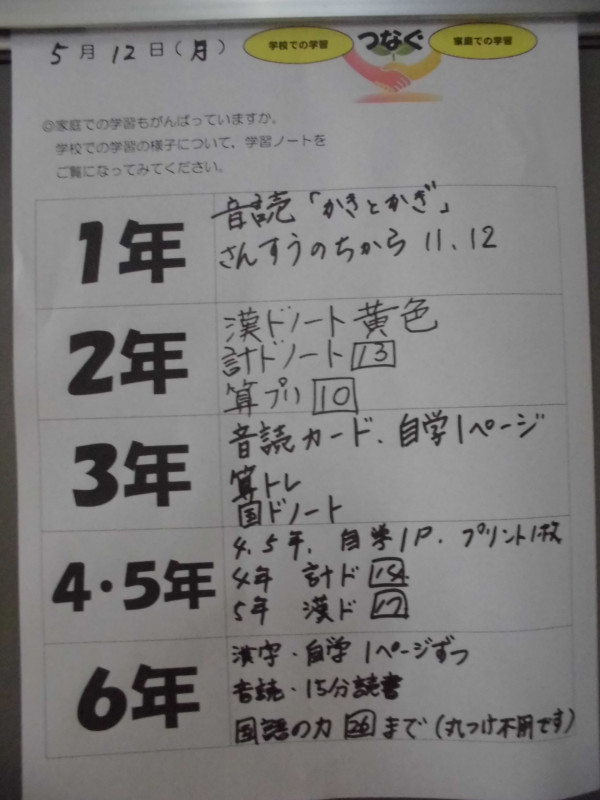 5月12日(月)
学校での学習 つなぐ 家庭での学習
◎家庭での学習もがんばっていますか。
学校での学習の様子について、学習ノートを
ご覧になってみてください。
1年
音読「かきとかぎ」
さんすうのちから 11、12
2年
漢ドノート 黄色
計ドノート 13
算プリ 10
3年
音読カード、自学1ページ
算トレ
国ドノート
4・5年
4、5年、自学1P、プリント1枚
4年 計ド
5年 漢ド 17
6年
漢字・自学 1ページずつ
音読・15分読書
国語の力 26 まで(丸つけ不用です)